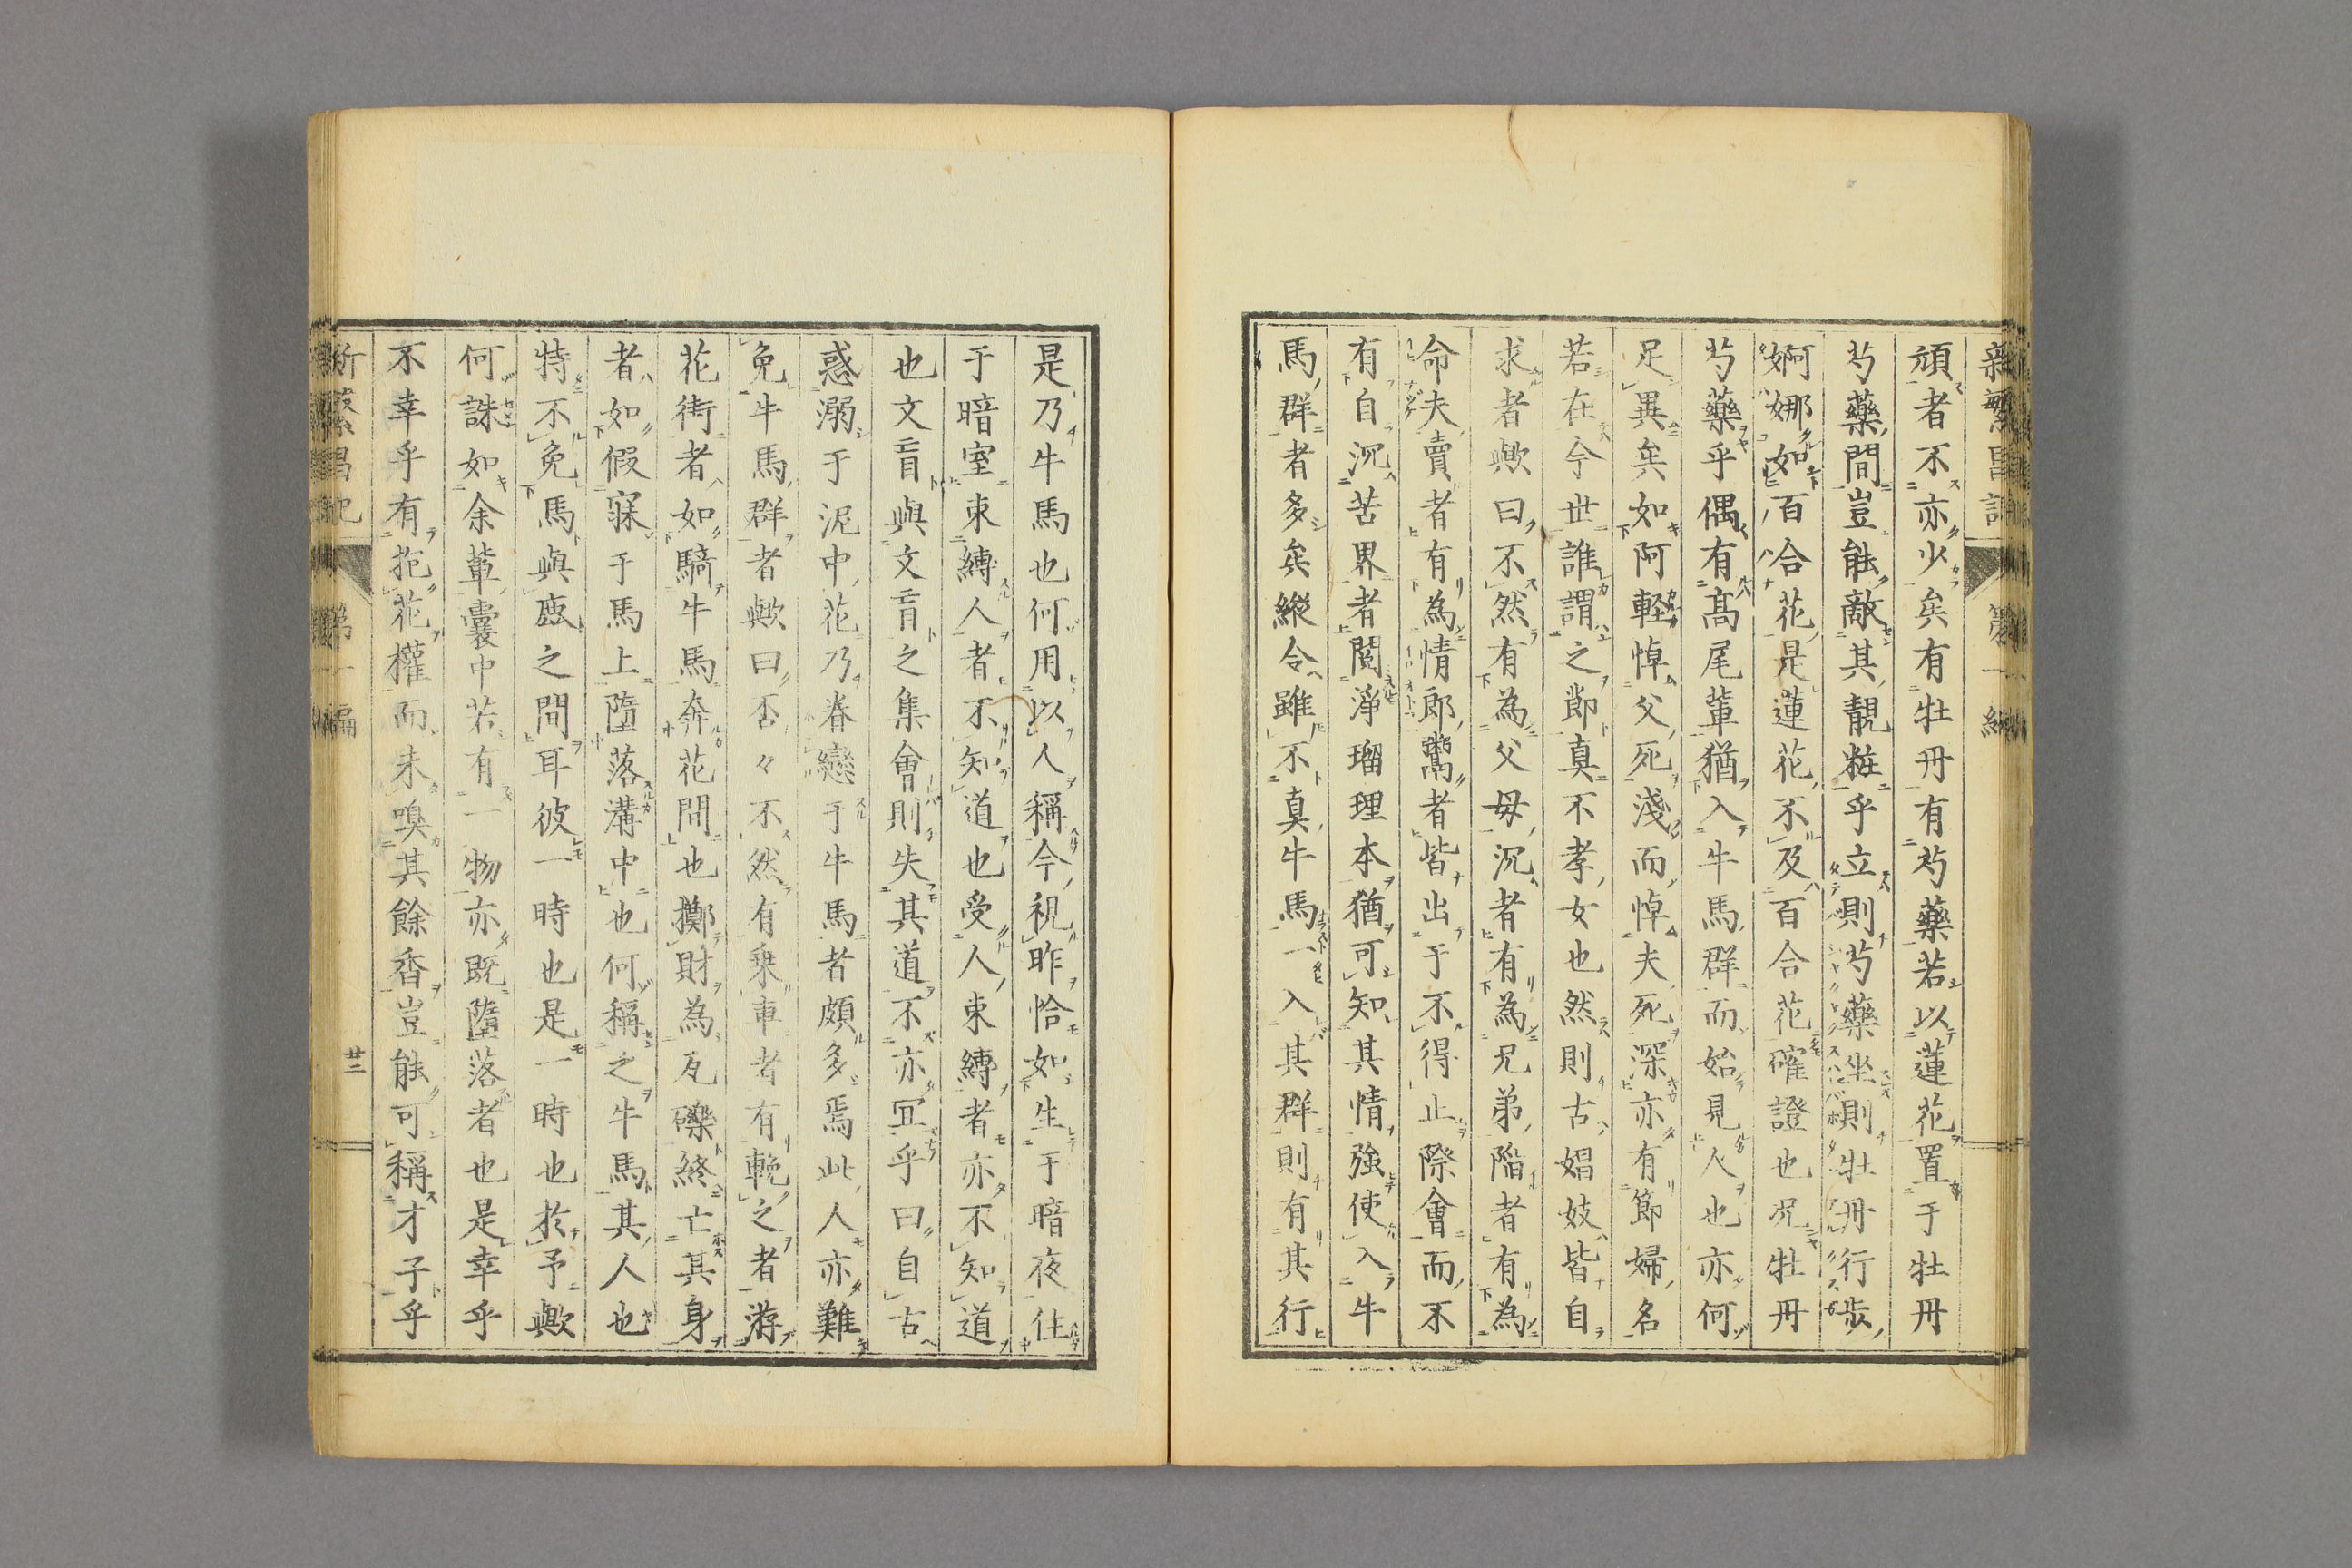 頑者不亦少矣有牡丹有芍藥若以蓮花置于牡丹
芍藥間豈能敵其靚粧乎立則芍藥坐則牡丹行歩
婀娜如百合花是蓮花不及百合花確證也况牡丹
芍藥乎偶有高尾輩猶入牛馬群而始見人也亦何
足異矣如阿軽悼父死淺而悼夫死深亦有節婦名
若在今世誰謂之節真不孝女也然則古娼妓皆自
求者歟曰不然有為父母沉者有為兄弟陷者有為
命夫賣者有為情郎鬻者皆出于不得止際會而不
有自沉苦界者閲淨瑠理本猶可知其情強使入牛
馬群者多矣縱令雖不真牛馬一入其群則有其行
是乃牛馬也何用以人稱今視昨恰如生于暗夜住
于暗室束縛人者不知道也受人束縛者亦不知道
也文盲與文盲之集會則失其道不亦冝乎曰自古
惑溺于泥中花乃眷戀于牛馬者頗多焉此人亦難
免牛馬群者歟曰否々不然有乗車者有輓之者游
花街者如騎牛馬奔花間也擲財為瓦礫終亡其身
者如假寐于馬上墮落溝中也何稱之牛馬其人也
特不免馬與鹿之間耳彼一時也是一時也於予歟
何誅如余輩囊中若有一物亦既墮落者也是幸乎
不幸乎有抱花權而未嗅其餘香豈能可稱才子乎
新繁昌記
第一編
廿二